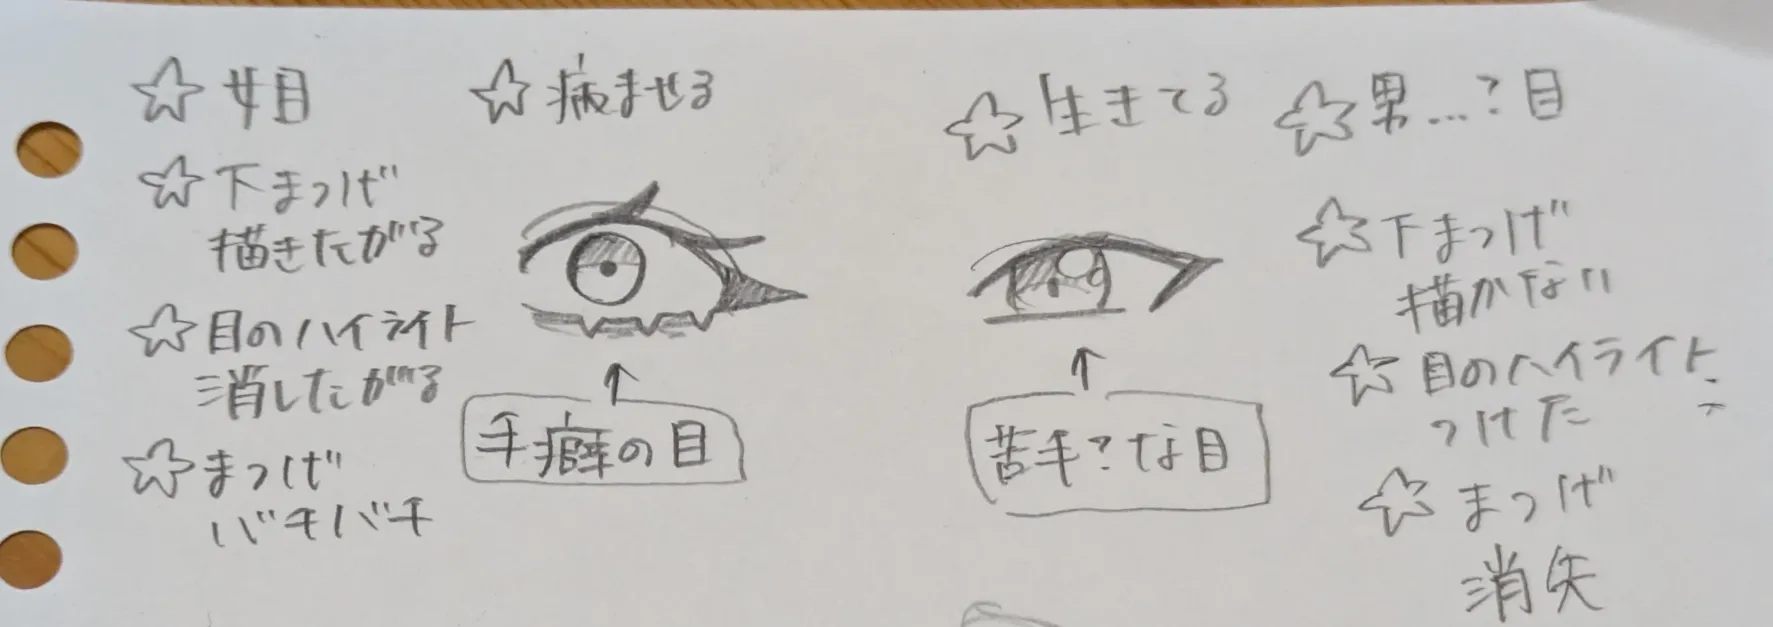 ☆女目
☆病ませる
☆下まつげ
描きたがる
☆目のハイライト
消したがる
☆まつげ
バチバチ
↑
手癖の目
☆生きてる
☆男...?目
☆下まつげ
描かない
☆目のハイライト
つけた
☆まつげ
消失
↑
苦手?な目